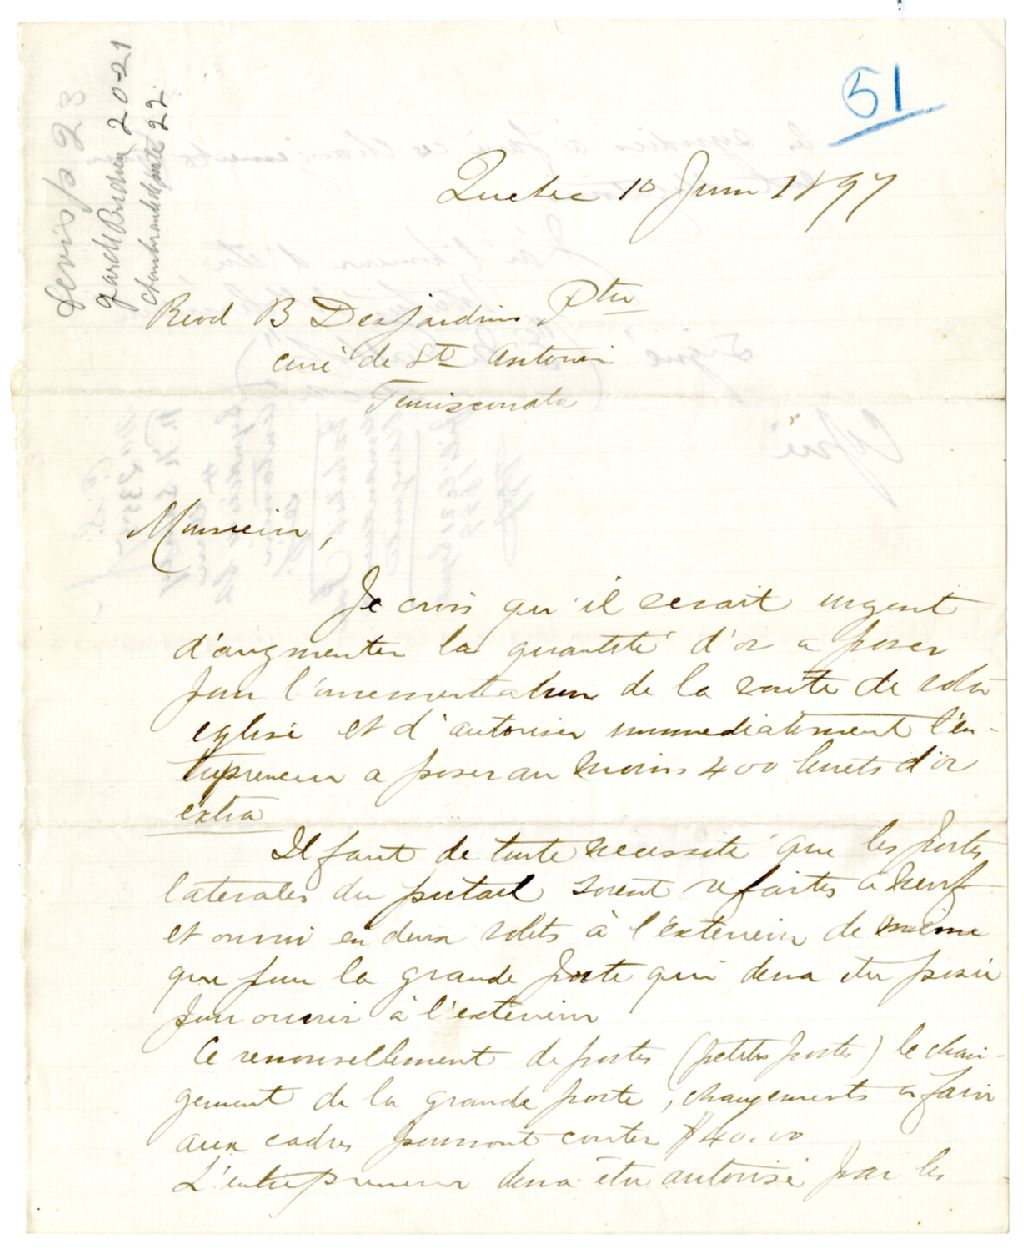 51
Quebec 10 Juin 1897
Revd B Desjardins Ptre
curé de St Antonin
Temiscouata
Monsieur,
Je crois qu'il serait urgent
d'augmenter la quantité d'or a poser
pour l'ornementation de la voute de votre
eglise et d'autoriser immediatement l'en-
trepreneur a poser au moins 400 livrets d'or
extra
Il faut de toute necessité que les portes
laterales du portail soient refaites a neuf
et ouvrir en deux volets à l'exterieur de meme
que pour la grande porte qui devra etre posée
pour ouvrir à l'exterieur
Ce renouvellement de portes (petites portes) le chan-
gement de la grande porte, changements a faire
aux cadres pourront couter $40.00
L'entrepreneur devra être autorisé par les